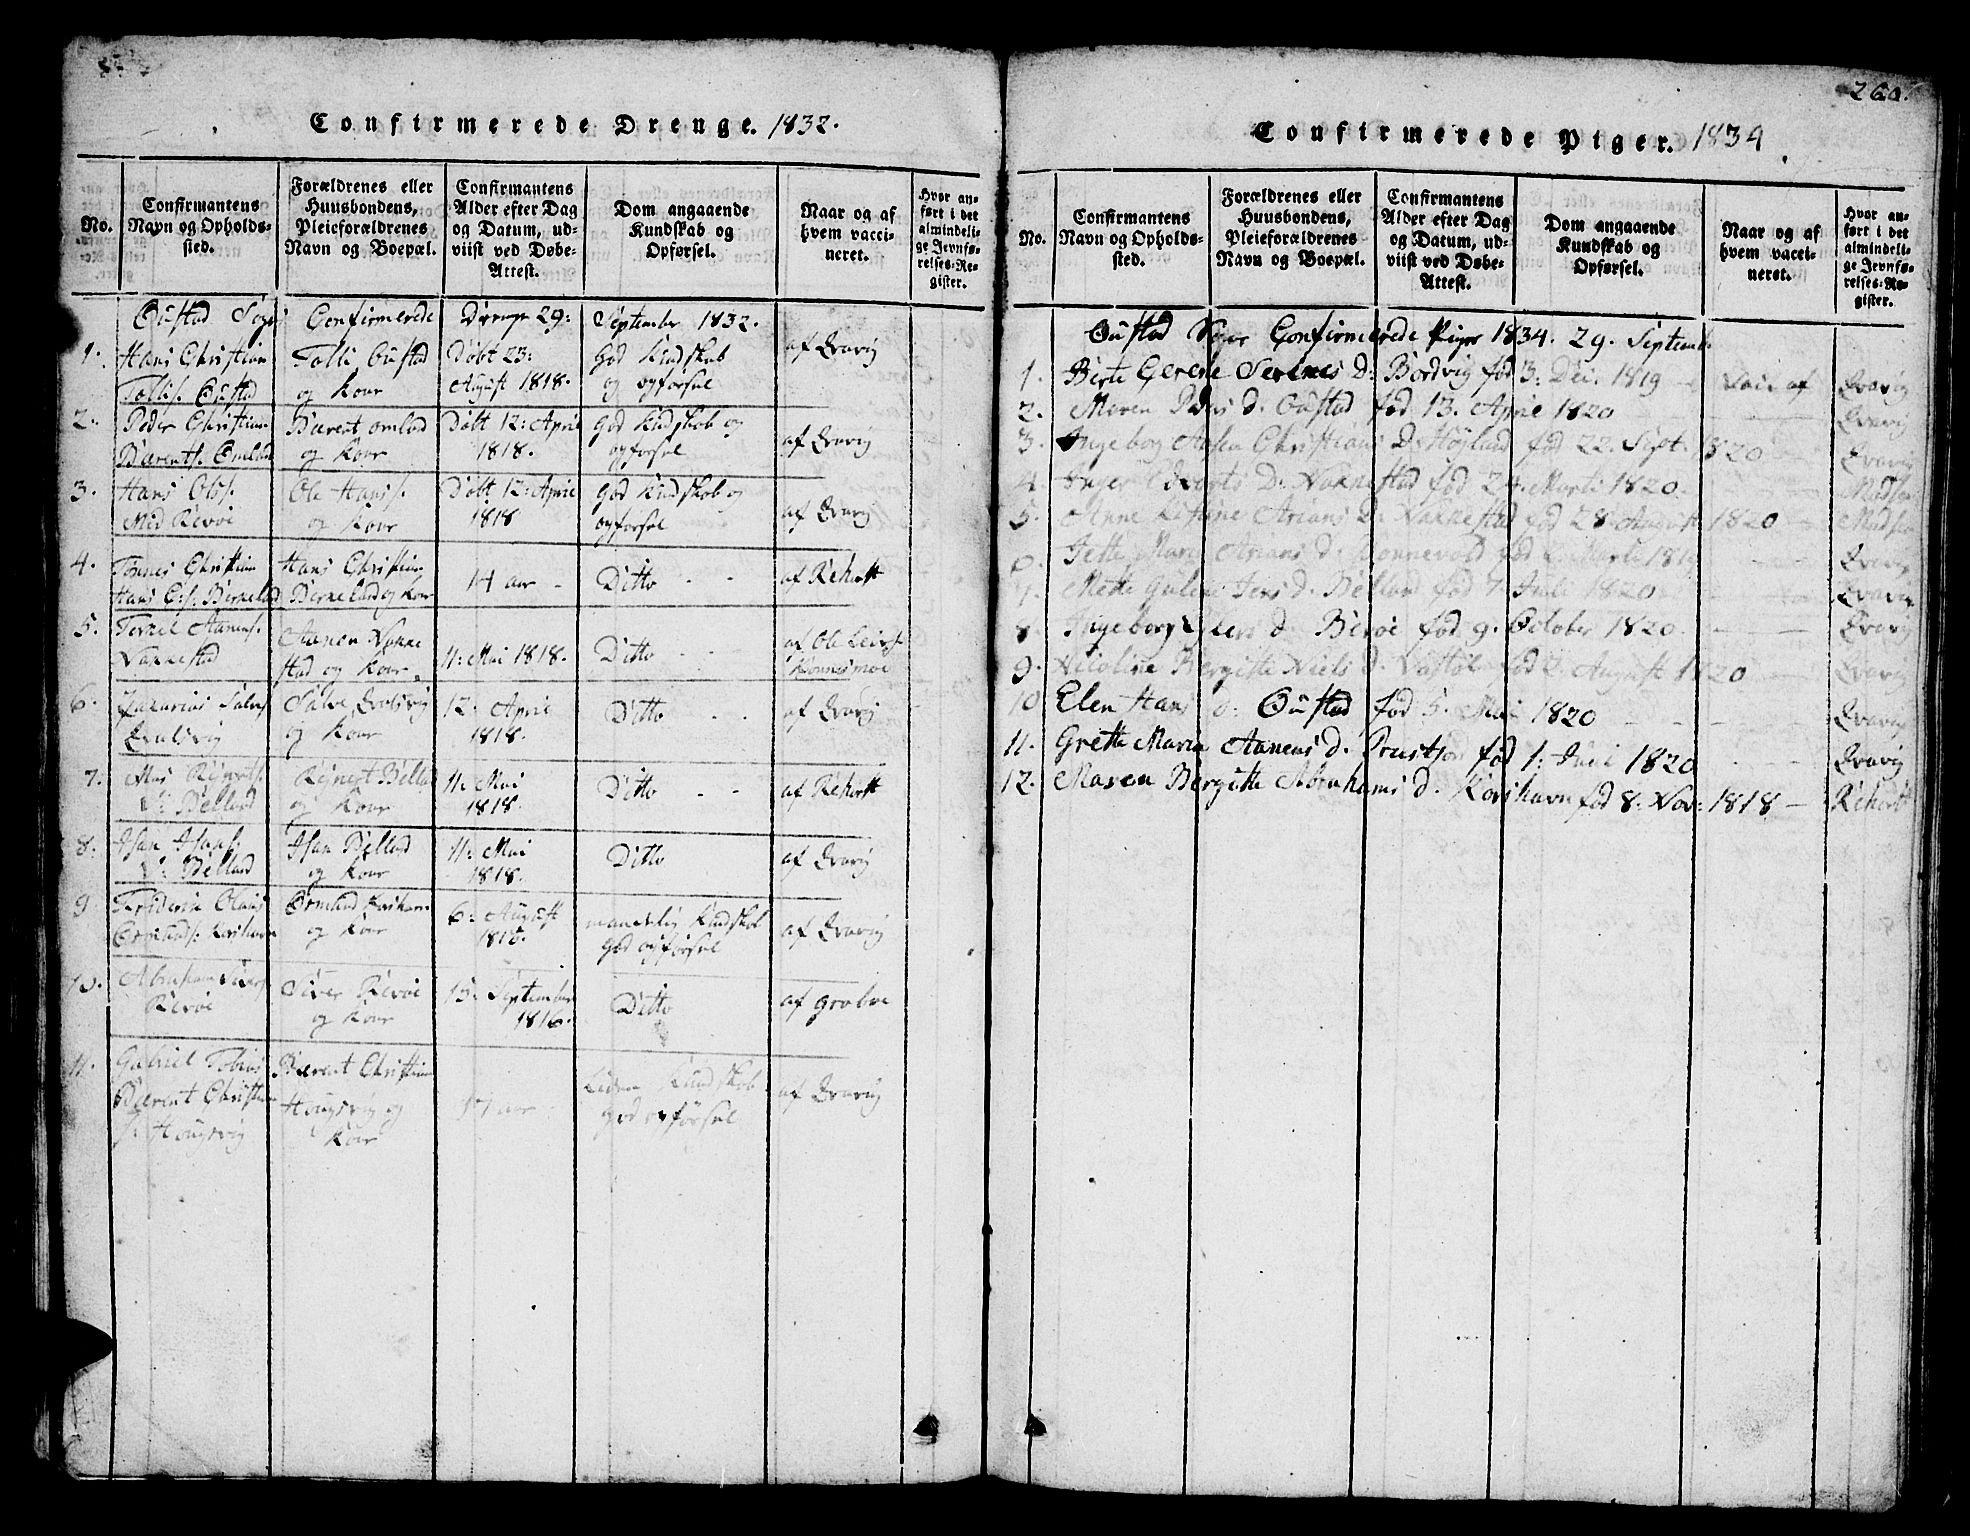 Confirmerede Drenge. 1832.
No.
Confirmantens Navn og Opholdssted.
Forældrenes eller Huusbondens, Pleieforældrenes Navn og Boepæl.
Confirmantens Alder efter Dag og Datum, udviist ved Døbe-Attest.
Dom angaaende Kundskab og Opførsel.
Naar og af hvem vaccineret.
Hvor anført i det almindelige Jevnførelses-Register.
Oustad Sogn Confirmerede Drenge 29: September 1832.
1. Hans Christian Tollis. Oustad
Tolli Oustad og Kone
Døbt 23: August 1818.
God Kundskab og opførsel
af Qvavig
2. Peder Christian Bærents. Omland
Bærent Omland og Kone
Døbt 12: April 1818.
God Kundskab og opførsel
af Qvavig
3. Hans Ols. Med Revøe
Ole Hans. og Kone
Døbt 12: April 1818
God Kundskab og opførsel
af Qvavig
4. Tønnes Christian Hans C:s. Birkeland
Hans Christian Birkeland og Kone
14 aar -
Ditto - -
af Rehortt
5. Terkil Aanens. Nakkestad
Aanen Nakkestad og Kone
11: Mai 1818.
Ditto - -
af Ole
6. Zakarias Salves
Salve og Kone
12: April 1818.
Ditto - -
af Qvavig
7. Reinerts. V: Belland
Reinert Belland og Kone
11: Mai 1818.
Ditto - -
af Rehortt
8. Isan Isans. V: Belland
Isan Belland og Kone
11: Mai 1818.
Ditto
af Qvavig
9. Friderik Olaus Ormlunds. Korshavn
Ormlund Korshavn og Kone
6: August
maadelig Kundskab God opførsel
af Qvavig
10. Abraham Sivers. Revøe
Siver Revøe og Kone
13: September 1816.
Ditto
af Grabve
11. Gabriel Tobias Bærent Christians. Hougsvig
Bærent Christian Hougsvig og Kone
17 aar -
Liden Kundskab god opførsel
af Qvavig
260.
Confirmerede Piger. 1834
No.
Confirmantens Navn og Opholdssted.
Forældrenes eller Huusbondens, Pleieforældrenes Navn og Boepæl.
Confirmantens Alder efter Dag og Datum, udviist ved Døbe-Attest.
Dom angaaende Kundskab og Opførsel.
Naar og af hvem vaccineret.
Hvor anført i det almindelige Jevnførelses-Register.
Oustad Sogns Confirmerede Piger 1834. 29. Septemb.
1. Birte Gerene Serines D: Bordvig fød 3: Dei. 1819 - af Qvavig
2. Maren Peders d. Oustad fød 13. April 1820 Qvavig
3. Ingeborg Asen Christians D. Høyland fød 22. Sept. 1820 Qvavig
4. Inger Edvarts D. Nakkestad fød 24. Marti 1820 - Madsen
5. Anne Arians D. Nakkestad fød 28 August 1820 - Madsen
6. Jette Mary Arians d: Bonnevold fød Marti 1819 Qvavig
7. Mette Guline Jens d. Belland fød 7. Juli 1820 Qvavig
8. Ingeborg d. Revøe fød 9. October 1820 Qvavig
9. Nicoline Bergitte Niels d. Vastøl fød 2. August 1820 Qvavig
10 Elen Hans d: Oustad fød 5. Mai 1820 - Qvavig
11. Grette Maria Aanens d. fød 1: Juli 1820 - Qvavig
12. Maren Bergitte Abrahams d. Korshavn fød 8. Nov: 1818 - Rehortt